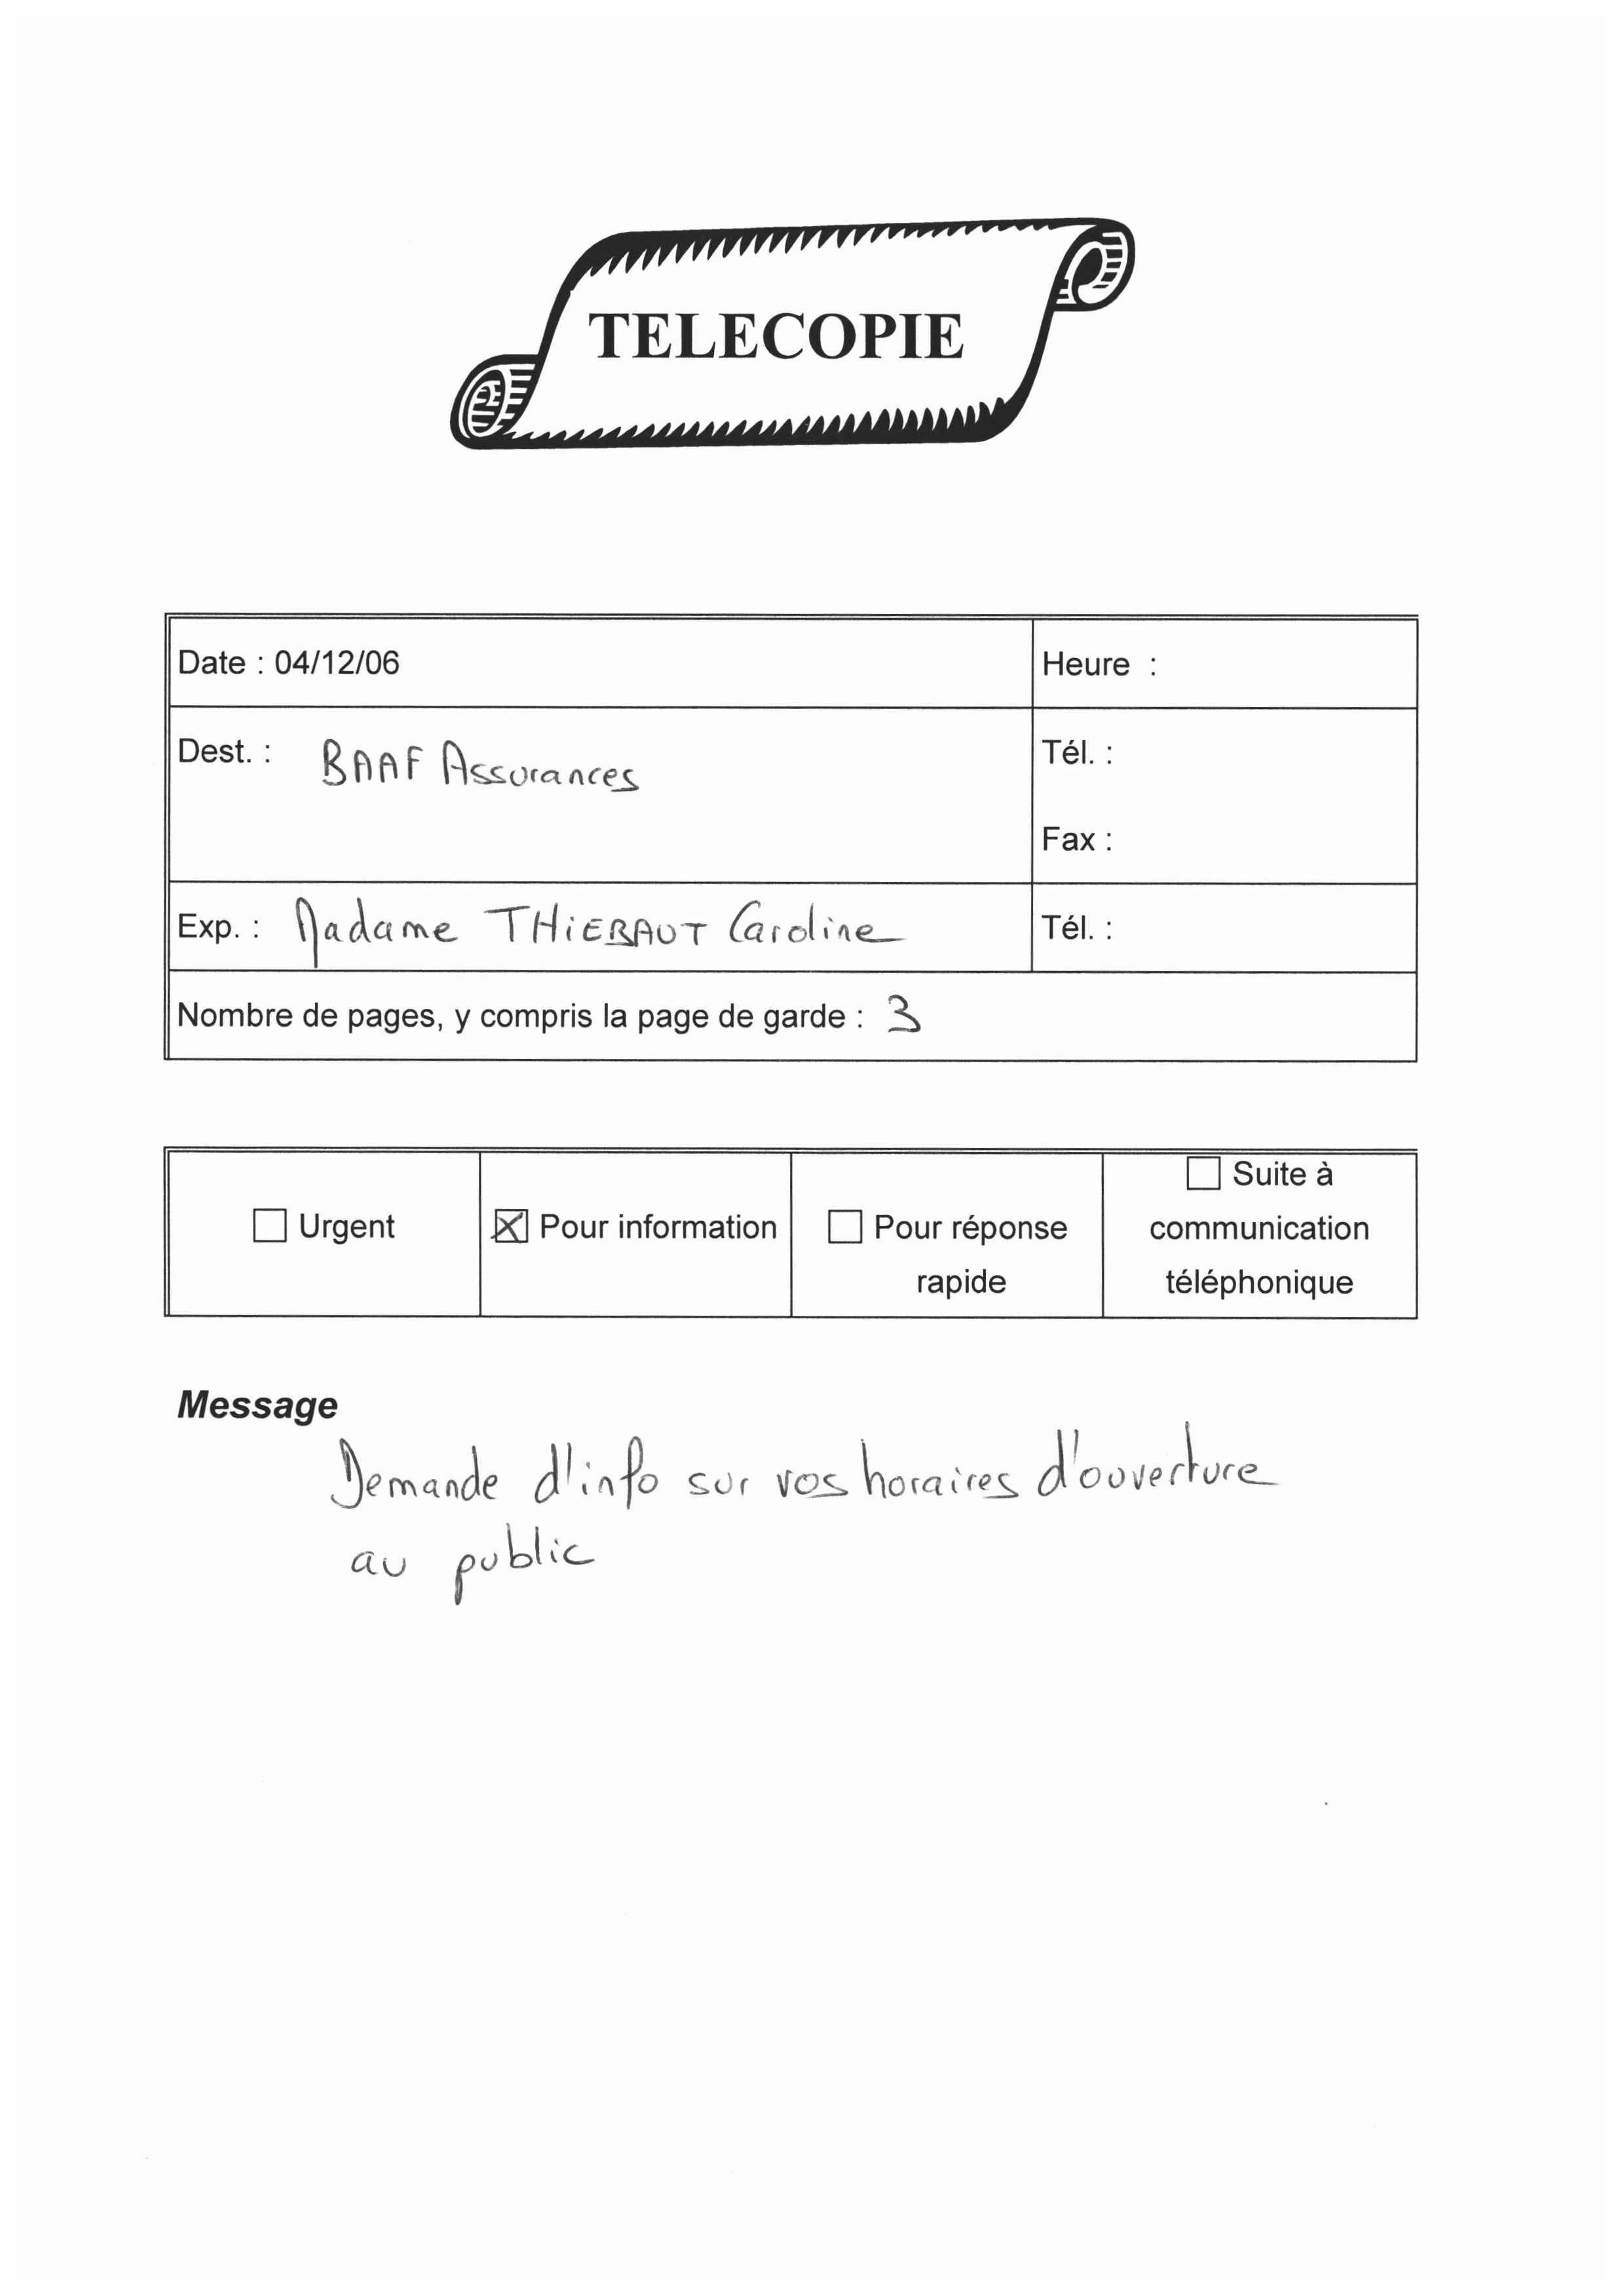 TELECOPIE
Date : 04/12/06
Heure :
Dest. : BAAF Assurances
Tél. :
Fax :
Exp. : Madame THiEBAUT Caroline
Tél. :
Nombre de pages, y compris la page de garde : 3
Urgent
Pour information
Pour réponse
rapide
Suite à
communication
téléphonique
Message
Demande d'info sur vos horaires d'ouverture
au public